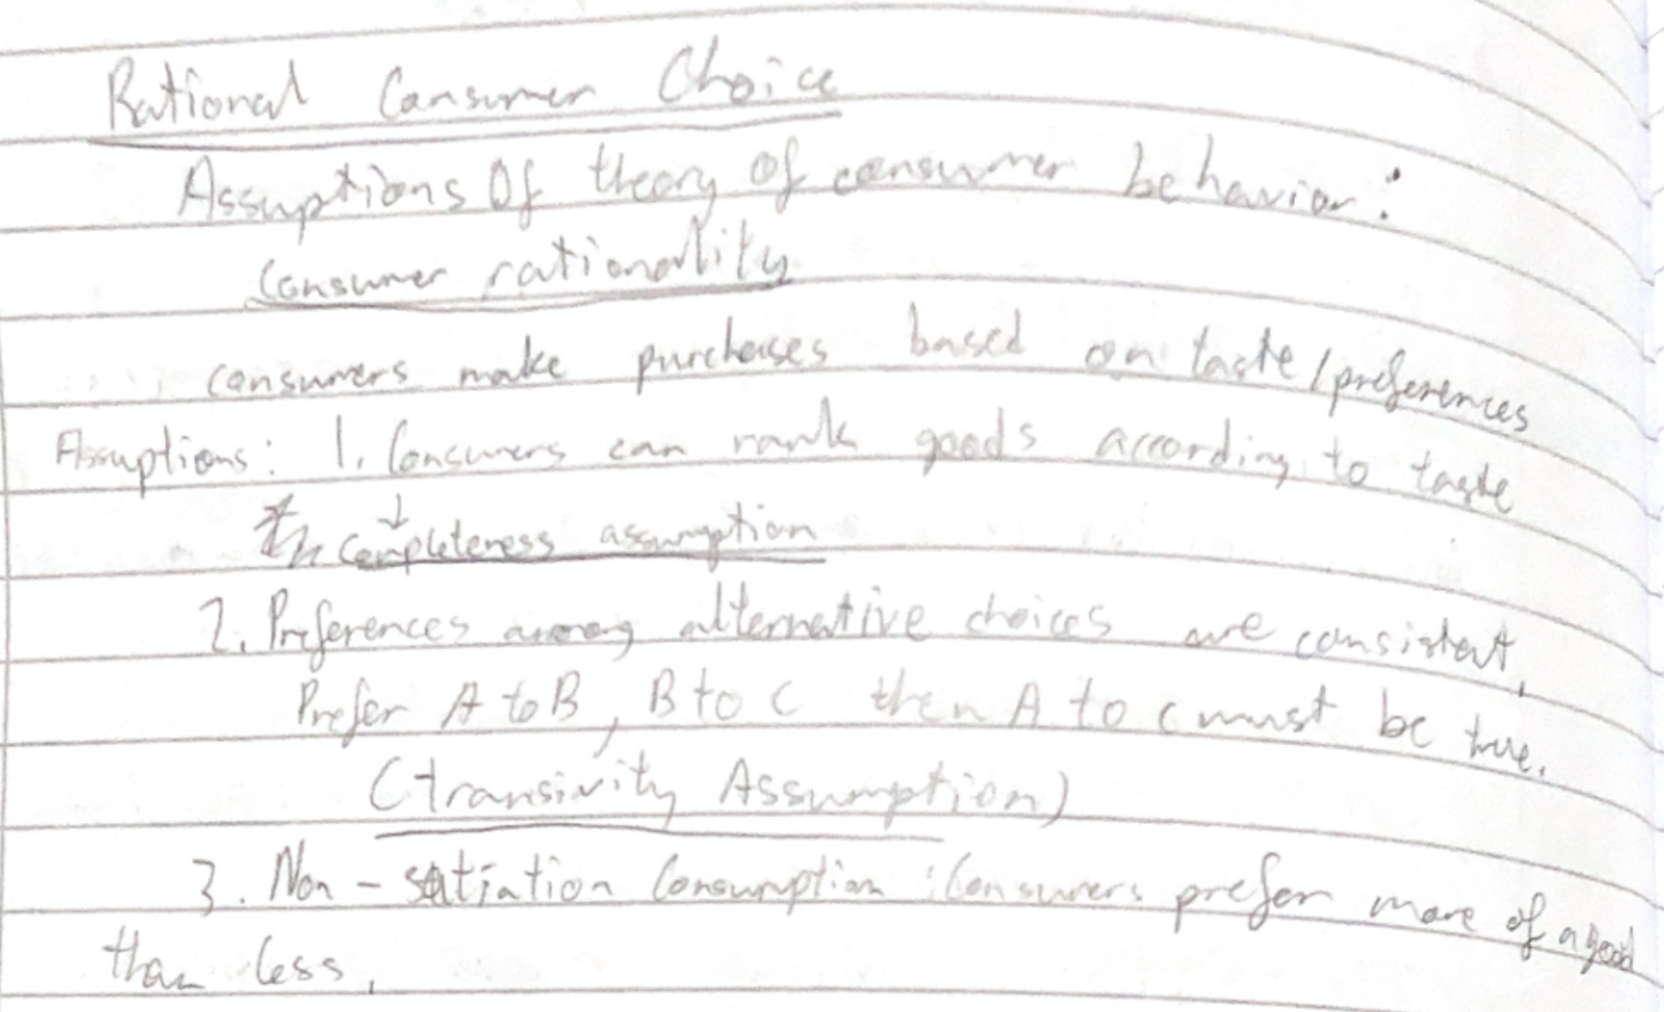 Rational Consumer Choice
Assuptions Of theory of consumer behavior:
Consumer rationality
consumers make purchases based on taste/preferences
Assuptions: 1. Consumers can rank goods according to taste
↓
Completeness assumption
2. Preferences among alternative choices are consistent,
Prefer A to B, B to C then A to C must be true.
(transivity Assumption)
3. Non-satiation Consumption: Consumers prefer more of a good
than less,